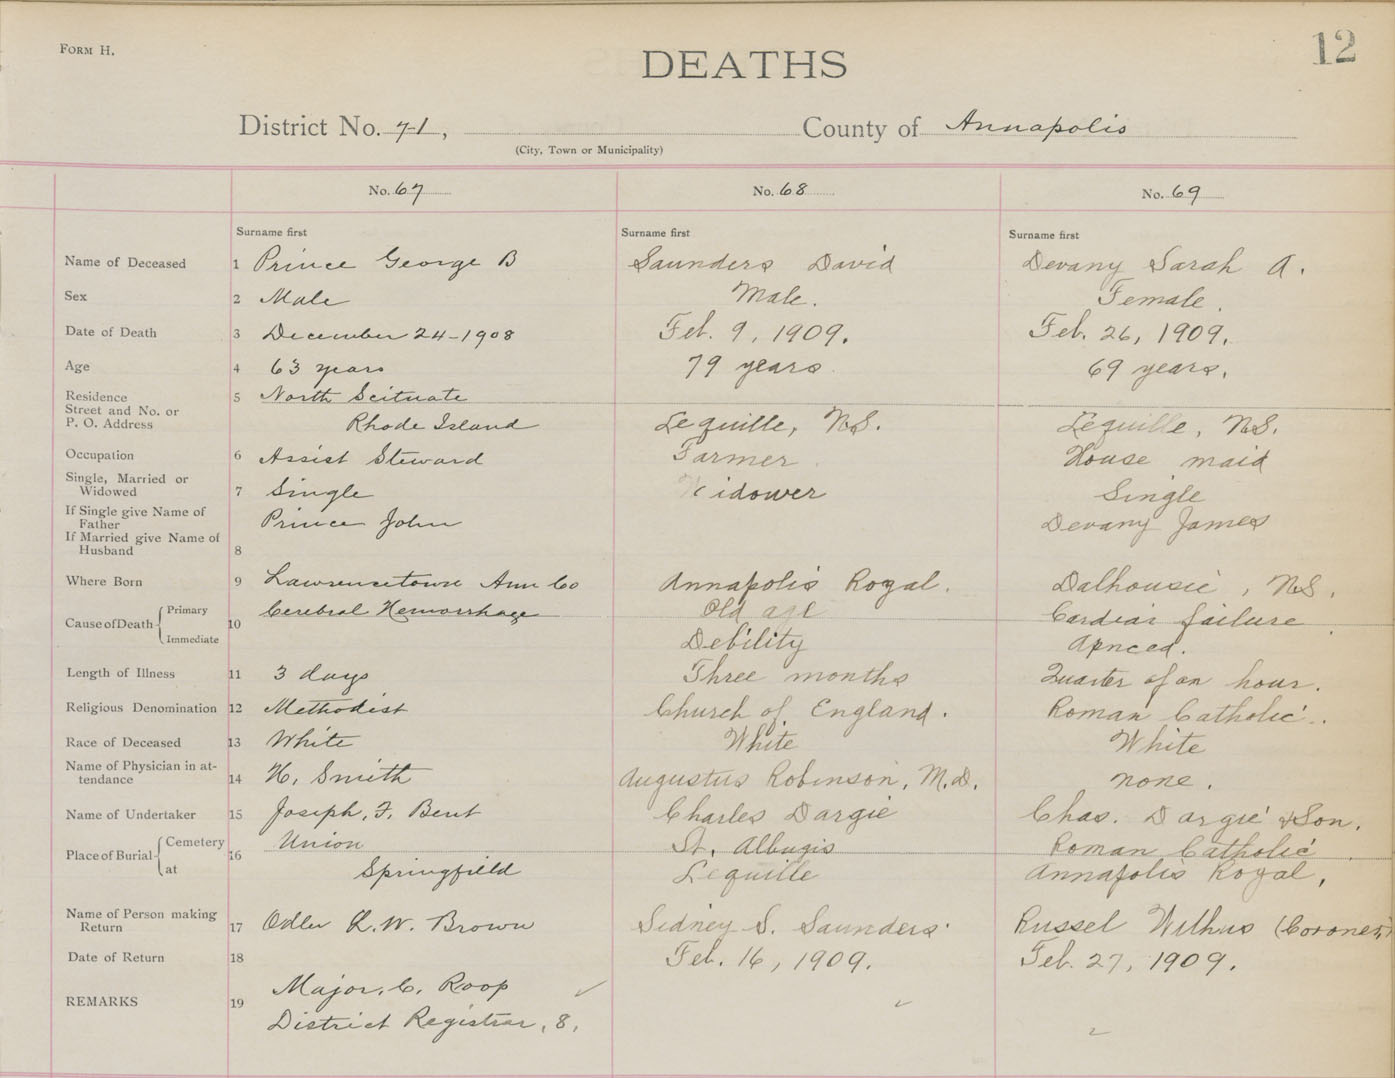 FORM H.
12
DEATHS
District No. 71, County of Annapolis
(City, Town or Municipality)
No. 67 No. 68 No. 69
Surname first Surname first Surname first
Name of Deceased 1 Prince George B Saunders David Devany Sarah A.
Sex 2 Male Male. Female.
Date of Death 3 December 24-1908 Feb. 9, 1909. Feb. 26, 1909.
Age 4 63 years 79 years. 69 years.
Residence 5 North Scituate
Street and No. or
P. O. Address Rhode Island Lequille, N.S. Lequille, N.S.
Occupation 6 Assist Steward Farmer. House maid
Single, Married or
Widowed 7 Single Widower Single
If Single give Name of
Father Prince John Devany James
If Married give Name of
Husband 8
Where Born 9 Lawrencetown Ann Co Annapolis Royal. Dalhousie, N.S.
Cause of Death Primary 10 Cerebral Hemorrhage Old age Cardiac failure
Immediate Debility
Length of Illness 11 3 days Three months Quarter of an hour.
Religious Denomination 12 Methodist Church of England. Roman Catholic.
Race of Deceased 13 White White White
Name of Physician in at-
tendance 14 H. Smith Augustus Robinson, M.D. none.
Name of Undertaker 15 Joseph, F. Bent Charles Dargie Chas. Dargie & Son.
Place of Burial Cemetery 16 Union St. Roman Catholic
at Springfield Lequille Annapolis Royal,
Name of Person making
Return 17 L. W. Brown Sidney S. Saunders. Russel (Coroner)
Date of Return 18 Feb. 16, 1909. Feb. 27, 1909.
REMARKS 19 Major. C. Roop
District Registrar, 8.